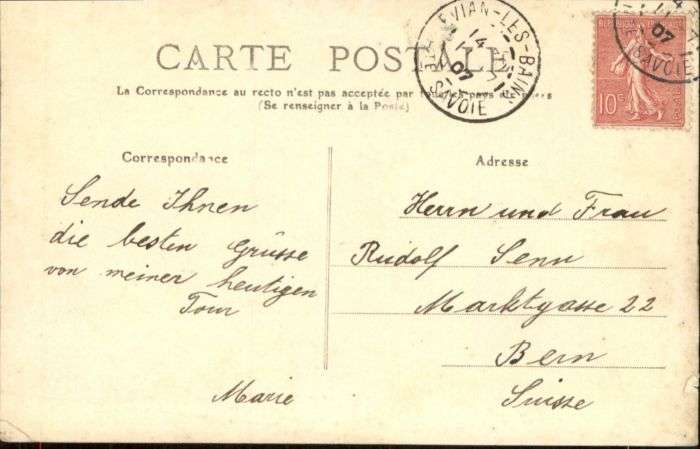 CARTE POSTALE
La Correspondance au recto n'est pas acceptée par tous les pays étrangers
(Se renseigner à la Poste)
Correspondance
Sende Ihnen
die besten Grüsse
von meiner heutigen
Tour
Marie
Adresse
Herrn und Frau
Rudolf Senn
Marktgasse 22
Bern
Suisse
EVIAN-LES-BAINS
14
07
HTE SAVOIE
10c
07
SAVOIE